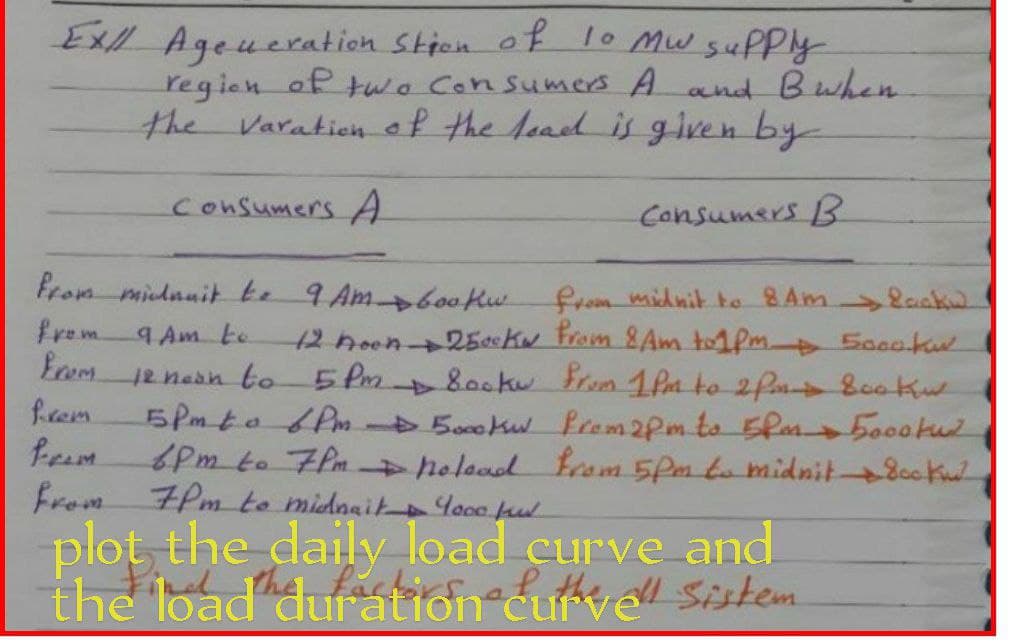 Ex// A geueration Stion of 10 MW supply
region of two Consumers A and B when
the varation of the load is given by
Consumers A Consumers B
from midnait to 9 AM → 600 Kw from midnit to 8 AM → 800 Kw
from 9 Am to 12 noon → 2500 Kw from 8 Am to 1 Pm → 5000 kw
from 12 noon to 5 Pm → 800 kw from 1 Pm to 2 Pm → 800 Kw
from 5 Pm to 6 Pm → 5000 kw from 2 Pm to 5 Pm → 5000 kw
from 6 Pm to 7 Pm → no load from 5 Pm to midnit → 800 Kw
from 7 Pm to midnait → 4000 kw
plot the daily load curve and
find the factors of the all Sistem
the load duration curve